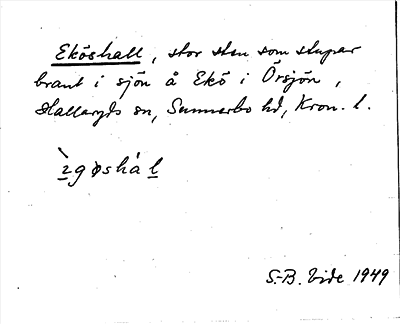 Eköshall, stor sten som stupar
brant i sjön å Ekö i Örsjön,
Hallaryds sn, Sunnerbo hd, Kron. l.
S.-B. Vide 1949